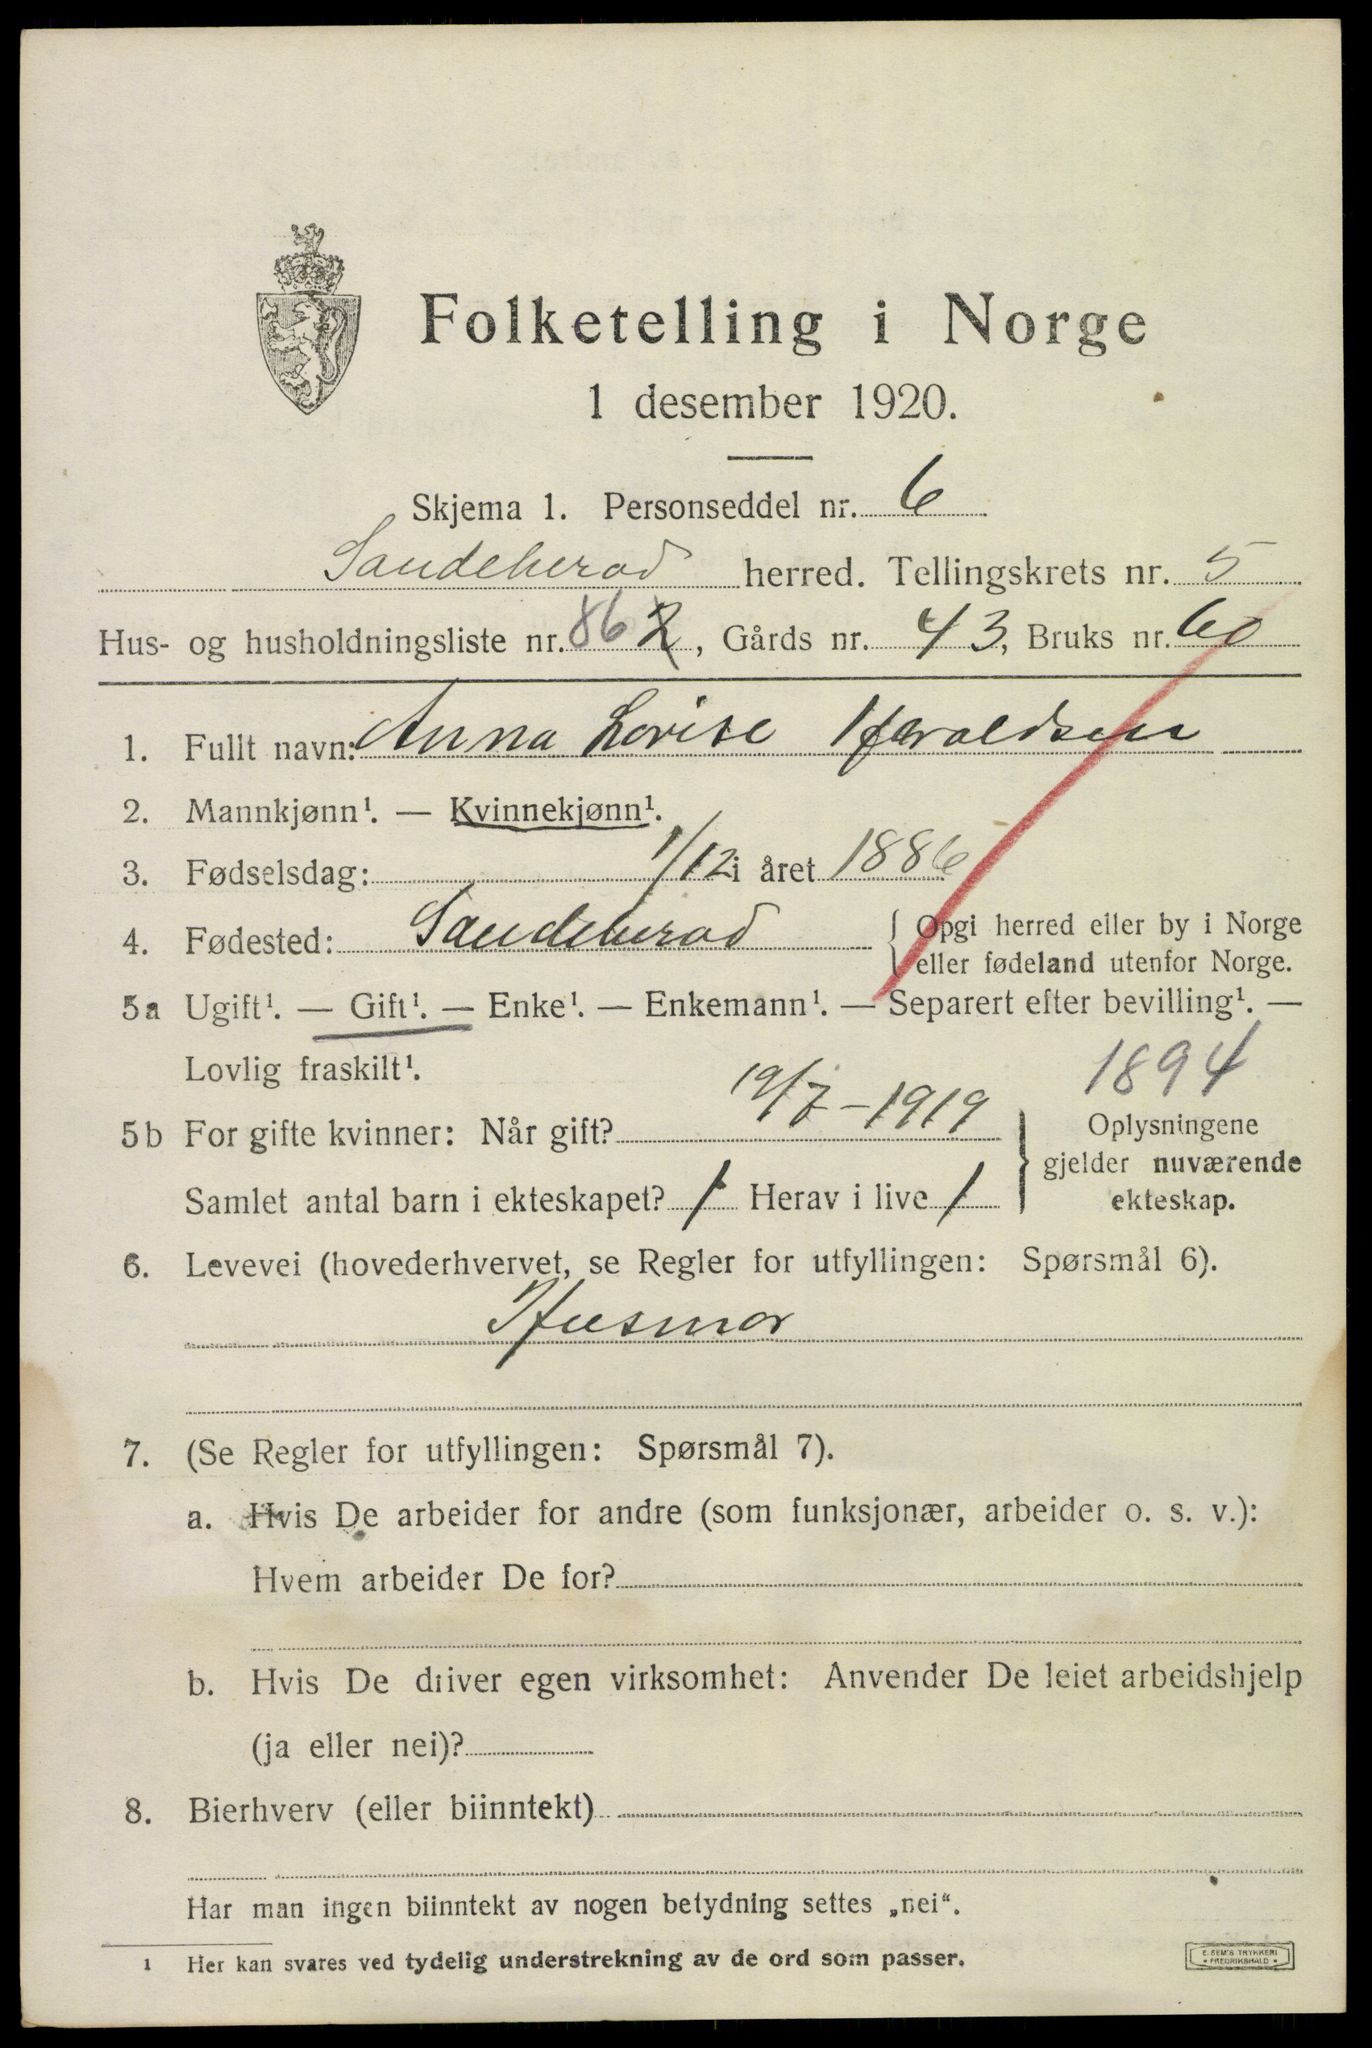 Folketelling i Norge
1 desember 1920.
Skjema 1. Personseddel nr. 6
Sandeherad herred. Tellingskrets nr. 5
Hus- og husholdningsliste nr. 86 2, Gårds nr. 43, Bruks nr. 60
1. Fullt navn: Anna Lovise Haraldsen
2. Mannkjønn¹. — Kvinnekjønn¹.
3. Fødselsdag: 1/12 i året 1886
4. Fødested: Sandeherad { Opgi herred eller by i Norge
eller fødeland utenfor Norge.
5a Ugift¹. — Gift¹. — Enke¹. — Enkemann¹. — Separert efter bevilling¹. —
Lovlig fraskilt¹.
1894
5b For gifte kvinner: Når gift? 19/7-1919
Samlet antal barn i ekteskapet? 1 Herav i live 1
Oplysningene
gjelder nuværende
ekteskap.
6. Levevei (hovederhvervet, se Regler for utfyllingen: Spørsmål 6).
Husmor
7. (Se Regler for utfyllingen: Spørsmål 7).
a. Hvis De arbeider for andre (som funksjonær, arbeider o. s. v.):
Hvem arbeider De for?
b. Hvis De driver egen virksomhet: Anvender De leiet arbeidshjelp
(ja eller nei)?
8. Bierhverv (eller biinntekt)
Har man ingen biinntekt av nogen betydning settes „nei“.
1 Her kan svares ved tydelig understrekning av de ord som passer.
E. SEM'S TRYKKERI
• FREDRIKSHALD •